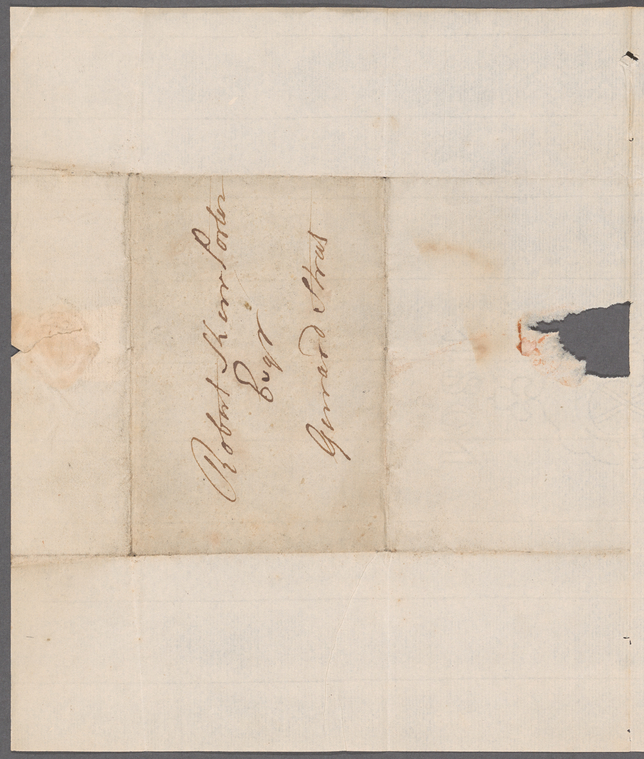 Robert Kerr Porter
Esqr
Gerrard Street